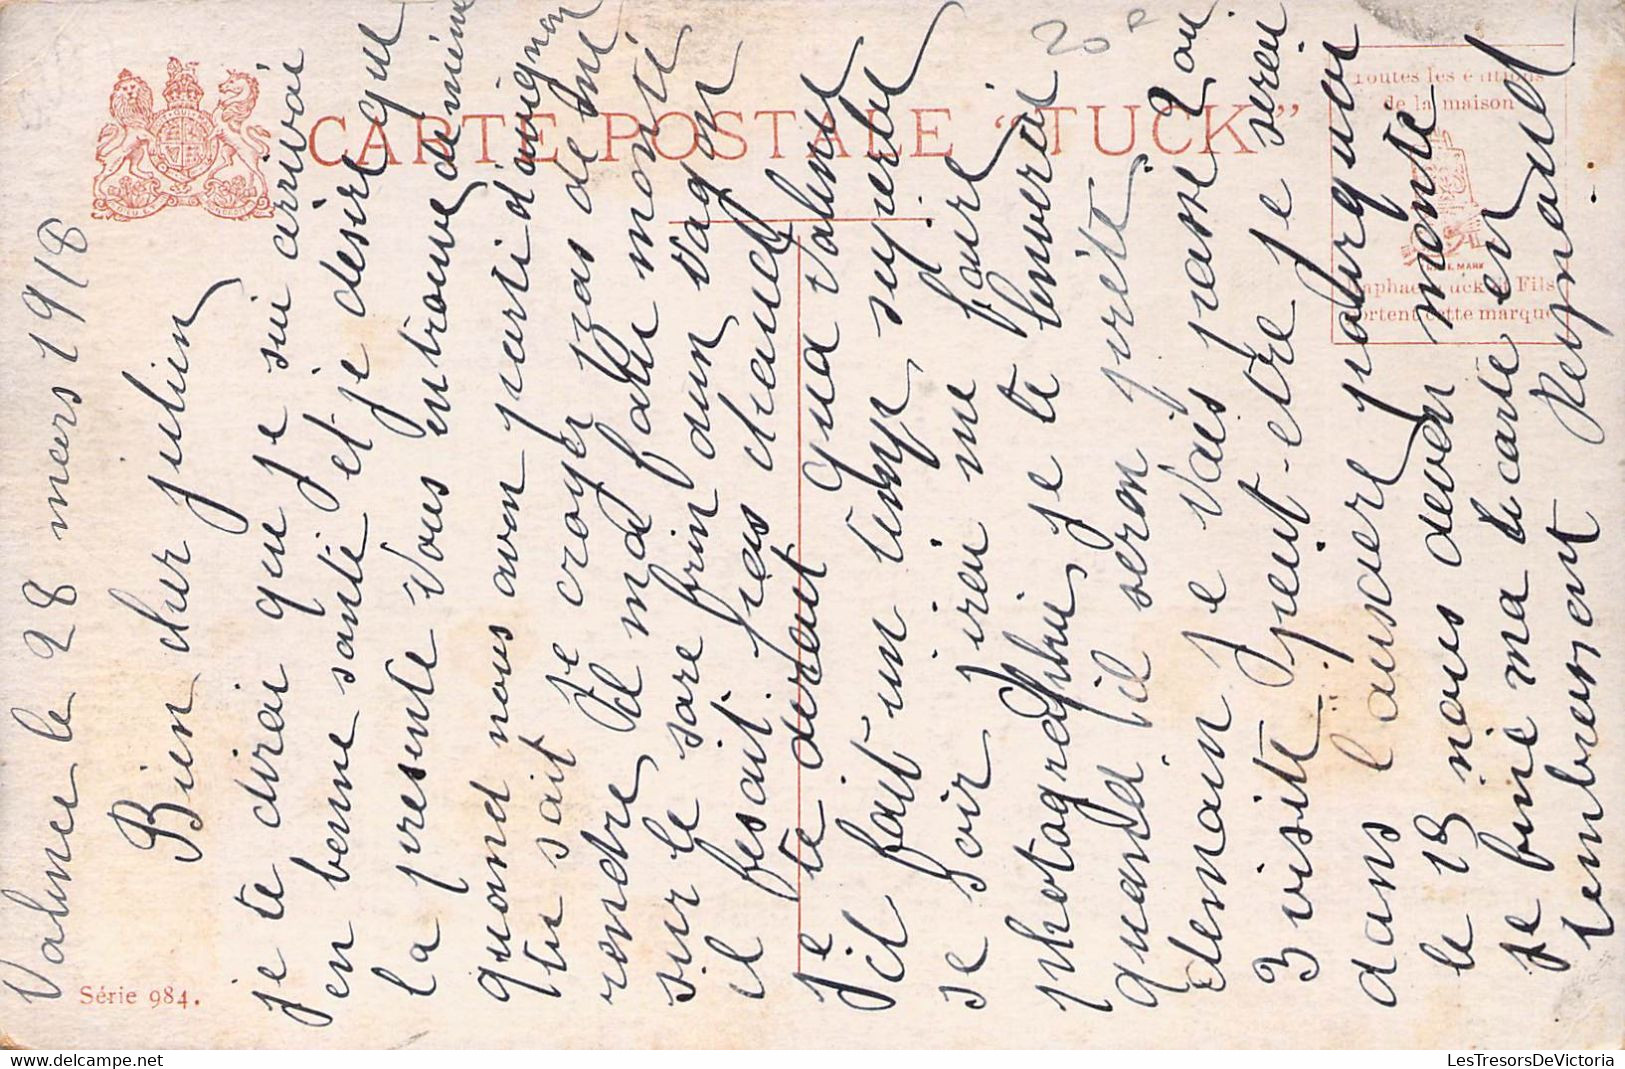 CARTE POSTALE "TUCK"
Toutes les éditions
de la maison
TRADE MARK
Raphael Tuck et Fils
portent cette marque
Série 984.
20
Valence le 28 mars 1918
Bien cher julien
je te dirai que je sui arrivai
en bonne santé et je désire que
la présente vous entrouve de même
quand nous avon parti d'avignon
tu sait je croyer pas de me
rendre il ma falu monté
sur le sare frin d'un vagon
il fesait pas chaud
je te dirait qua Valence
il fait un temp superbe
se soir jirai me faire
photographié je te lenverai
quand il seron prête
demain je vais passé 2 ou
3 visite peut-etre je serai
dans l'auxiliere pourquoi
le 18 nous devon
je finie ma carte en
t'embrassant Reynauld
LesTresorsDeVictoria